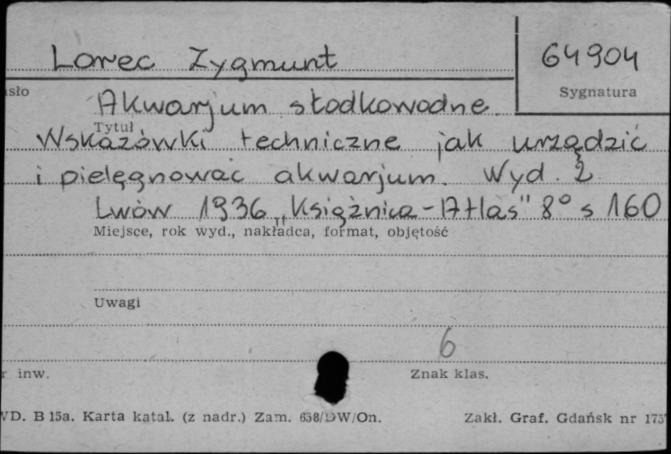 Lorec Zygmunt
64904
Sygnatura
Akwarjum słodkowodne.
Tytuł
Wskazówki techniczne jak urządzić
i pielęgnować akwarjum. Wyd. 2
Lwów 1936 „Książnica-Atlas" 8° s 160
Miejsce, rok wyd., nakładca, format, objętość
Uwagi
6
inw.
Znak klas.
B 15a. Karta katal. (z nadr.) Zam. 658/DW/On.
Zakł. Graf. Gdańsk nr